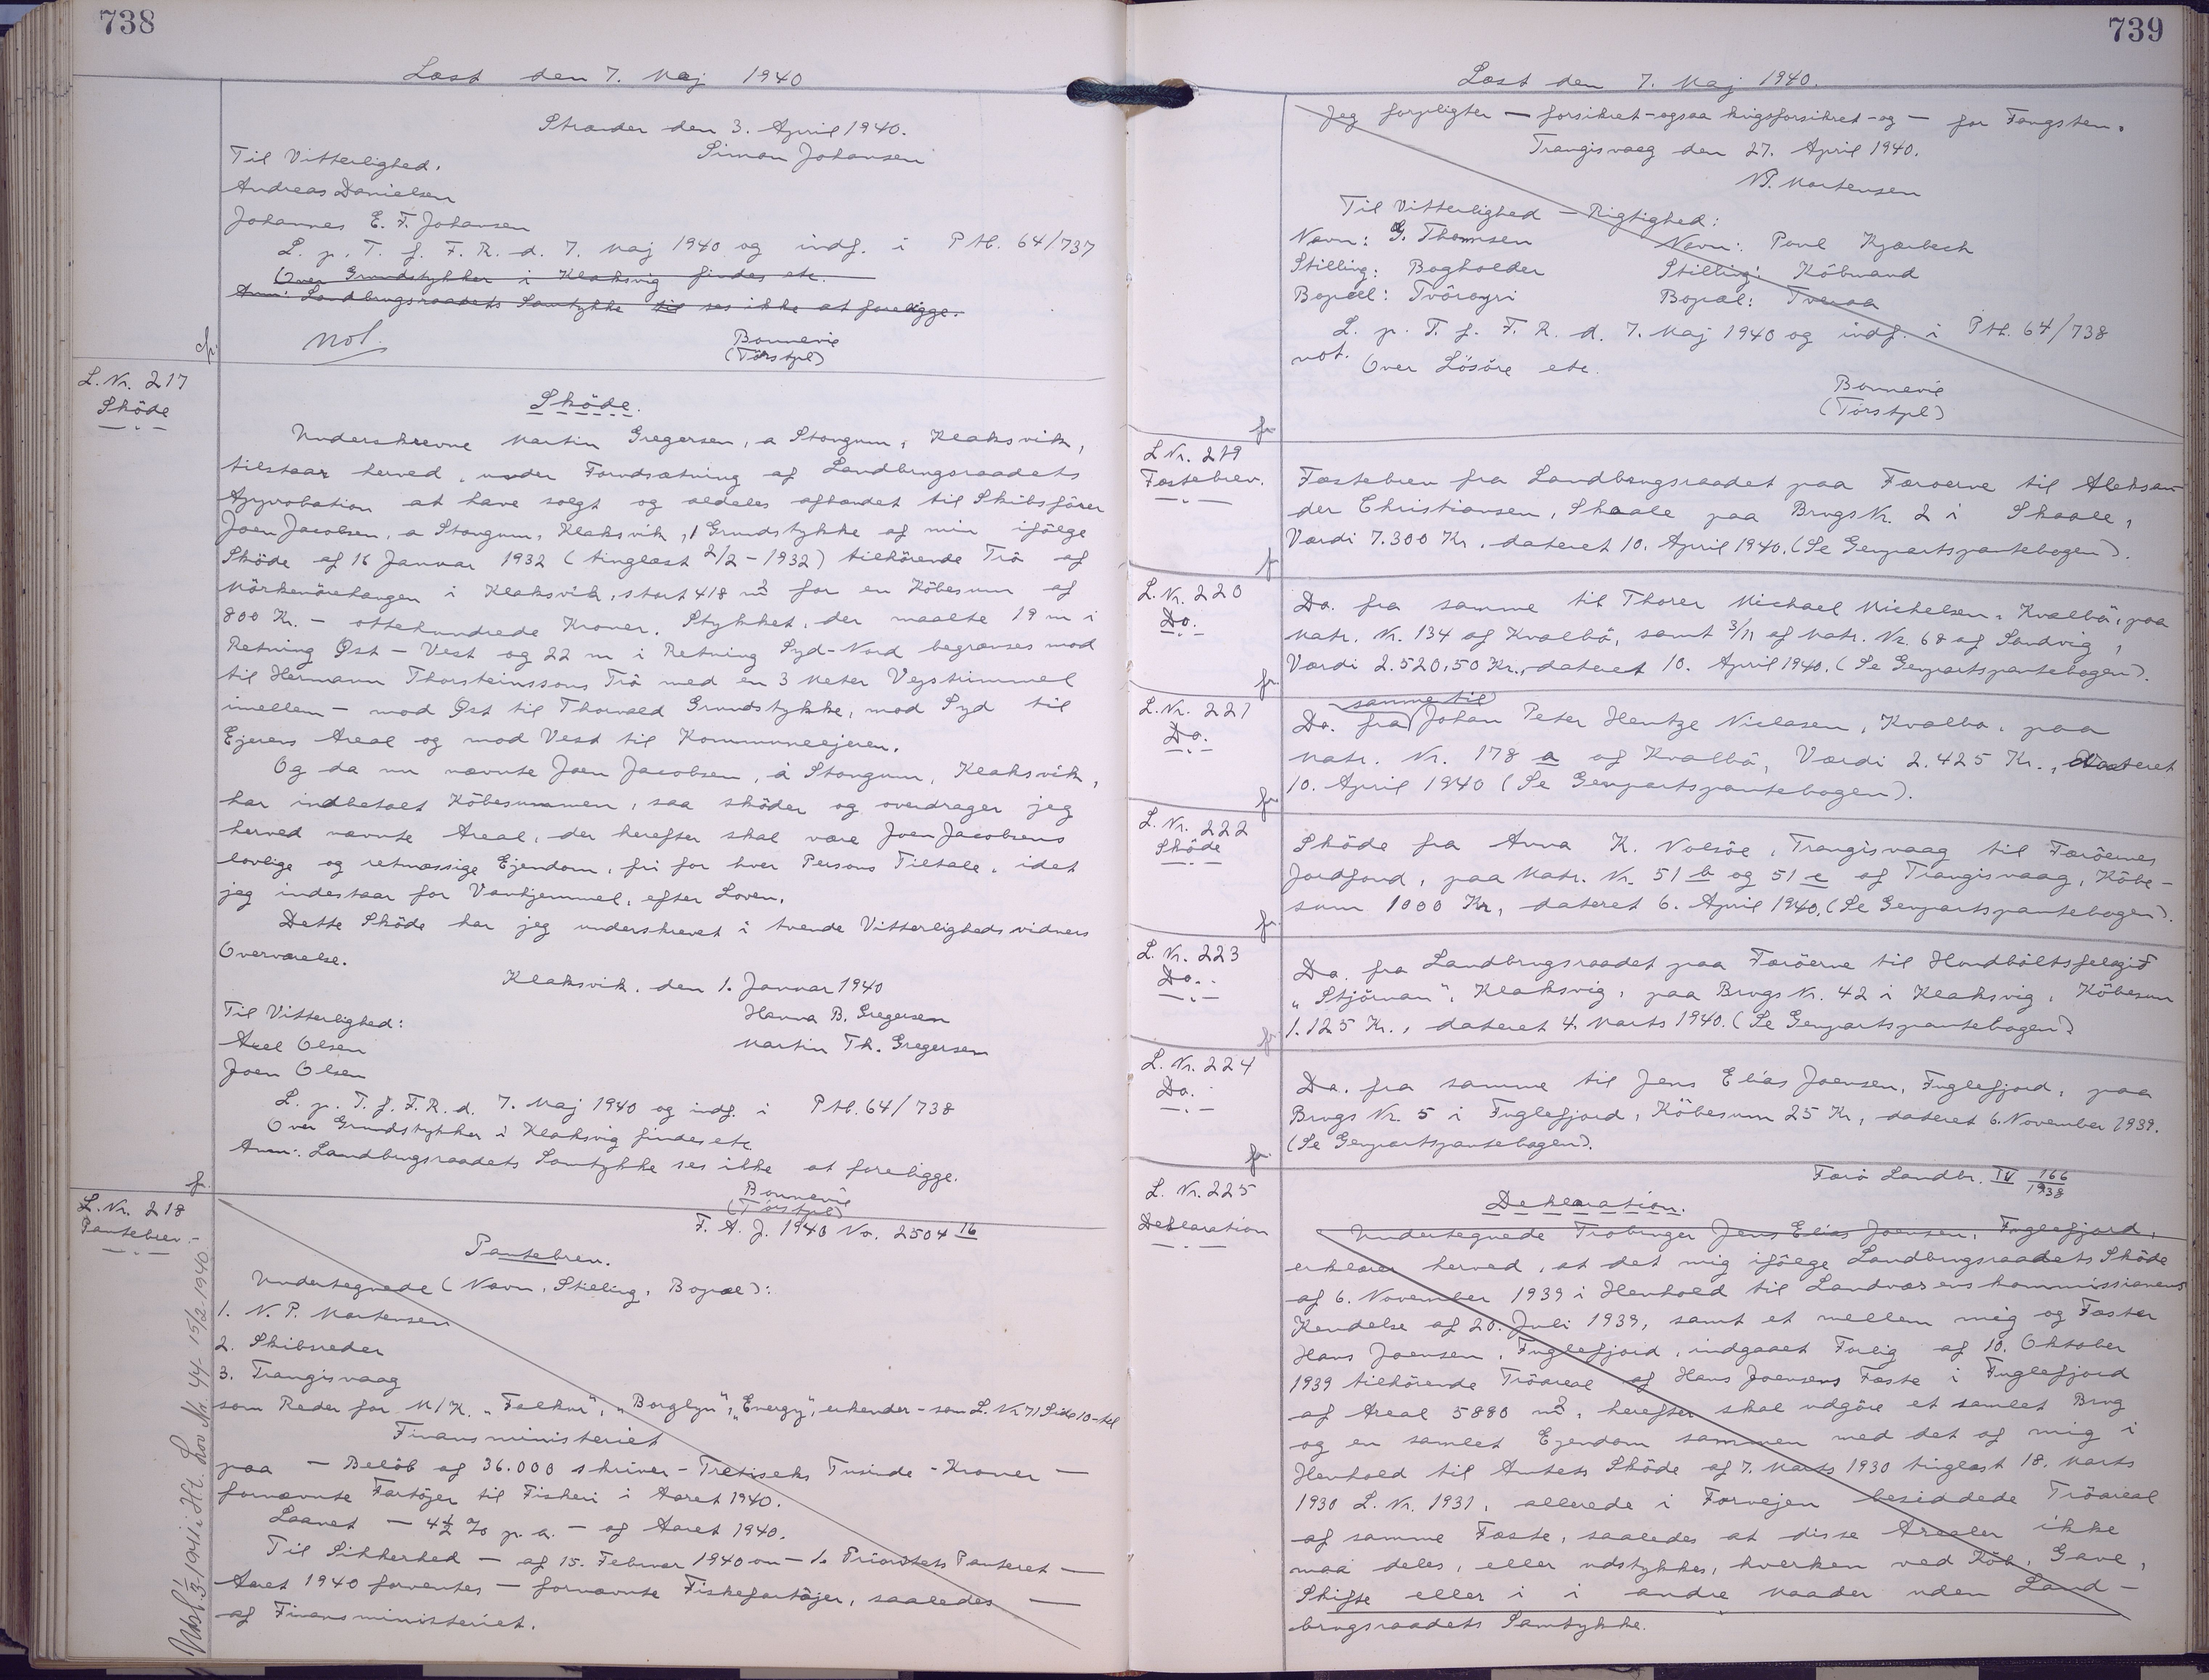 738
Læst den 7. Maj 1940
Strander den 3. April 1940.
Til Vitterlighed.
Simon Johansen
Andreas Danielsen
Johannes E. F. Johansen
L. p. T. f. F. R. d. 7. Maj 1940 og indf. i P M. 64/737
Over Grundstykker i Klaksvig findes etc.
Anm: Landbrugsraadets Samtykke til ses ikke at foreligge.
not.
Bonnevie
(Törstpl)
L. Nr. 217
Sköde
Sköde.
Underskrevne Martin Gregersen, a Stongum, Klaksvik,
tilstaar herved, under Forudsætning af Landbrugsraadets
Approbation at have solgt og aldeles afhændet til Skibsförer
Joen Jacobsen, a Stongum, Klaksvik, 1 Grundstykke af min ifölge
Sköde af 16 Januar 1932 (tinglæst 2/2 - 1932) tilhörende Trö af
Mörkenörehaugen i Klaksvik, stort 418 m² for en Köbesum af
800 Kr. - ottehundrede Kroner. Stykket, der maalte 19 m i
Retning Øst - Vest og 22 m i Retning Syd-Nord begrænses mod
til Hermann Thorsteinssons Trö med en 3 Meter Vejstrimmel
imellem - mod Øst til Thorvald Grundstykke, mod Syd til
Ejerens Areal og mod Vest til Kommuneejeren.
Og da nu nævnte Joen Jacobsen, á Stongum, Klaksvik,
har indbetalt Köbesummen, saa sköder og overdrager jeg
herved nævnte Areal, der herefter skal være Joen Jacobsens
lovlige og retmæssige Ejendom, fri for hver Persons Tiltale, idet
jeg indestaar for Vanhjemmel, efter Loven.
Dette Sköde har jeg underskrevet i tvende Vitterlighedsvidners
Overværelse.
Klaksvik. den 1. Januar 1940
Til Vitterlighed:
Hanna B. Gregersen
Axel Olsen
Martin Th. Gregersen
Joen Olsen
L. p. T. f. F. R. d. 7. Maj 1940 og indf. i P M. 64/738
Over Grundstykker i Klaksvig findes etc
Anm: Landbrugsraadets Samtykke ses ikke at foreligge.
Bonnevie
(Törstpl)
L. Nr. 218
Pantebrev.
F. A. J. 1940 No. 2504 16
Pantebrev.
Undertegnede (Navn, Stilling, Bopæl):
1. N. P. Mortensen
2. Skibsreder
3. Trangisvaag
som Reder for M/K. „Falkur", „Borglyn", „Energy", erkender - som L. Nr 71 Side 10 - til
Finansministeriet
paa - Beløb af 36.000 skriver - Tretiseks Tusinde - Kroner -
fornævnte Fartöjer til Fiskeri i Aaret 1940.
Laanet - 4½ % p. a. - af Aaret 1940.
Til Sikkerhed - af 15. Februar 1940 om - 1. Prioritets Panteret -
Aaret 1940 forventes - fornævnte Fiskefartöjer, saaledes -
af Finansministeriet.
1941 i H.t. Lov Nr. 44 15/2 1940.
739
Læst den 7. Maj 1940.
Jeg forpligter - forsikret - ogsaa krigsforsikret - og - for Fangsten.
Trangisvaag den 27. April 1940.
N.P. Mortensen
Til Vitterlighed - Rigtighed:
Navn: G. Thomsen
Navn: Poul Kjærbech
Stilling: Bogholder
Stilling: Köbmand
Bopæl: Tvöroyri
Bopæl: Tveraa
L. p. T. f. F. R. d. 7. Maj 1940 og indf. i P M. 64/738
not. Over Lösöre etc.
Bonnevie
(Törstpl)
L Nr. 219
Fæstebrev.
Fæstebrev fra Landbrugsraadet paa Færoerne til Aleksan-
der Christiansen, Skaale paa Brugs Nr. 2 i Skaale,
Værdi 7.300 Kr. dateret 10. April 1940. (Se Genpartspantebogen).
L. Nr. 220
Do.
Do. fra samme til Thorer Michael Michelsen, Kvalbö, paa
Matr. Nr. 134 af Kvalbö, samt 3/11 af Matr. Nr. 68 af Sandvig,
Værdi 2.520,50 Kr., dateret 10. April 1940. (Se Genpartspantebogen).
L. Nr. 221
Do.
samme til
Do. fra Johan Peter Hentze Niclasen, Kvalbo, paa
Matr. Nr. 178 a af Kvalbö, Værdi 2.425 Kr., dateret
10. April 1940 (Se Genpartspantebogen).
L. Nr. 222
Sköde
Sköde fra Anna K. Nolsöe, Trangisvaag til Færöernes
Jordfond, paa Matr. Nr. 51 b og 51 e af Trangisvaag, Köbe-
sum 1000 Kr, dateret 6. April 1940. (Se Genpartspantebogen).
L. Nr. 223
Do.
Do. fra Landbrugsraadet paa Færöerne til Hondböltsfelagið
„Stjörnan", Klaksvig, paa Brugs Nr. 42 i Klaksvig, Köbesum
1.125 Kr., dateret 4. Marts 1940. (Se Genpartspantebogen)
L. Nr. 224
Do.
Do. fra samme til Jens Elias Joensen, Fuglefjord, paa
Brugs Nr. 5 i Fuglefjord, Köbesum 25 Kr, dateret 6. November 1939.
(Se Genpartspantebogen).
L. Nr. 225
Deklaration
Færö Landbr. IV 166/1938
Deklaration.
Undertegnede Trobruger Jens Elias Joensen, Fuglefjord,
erklærer herved, at det mig ifölge Landbrugsraadets Sköde
af 6. November 1939 i Henhold til Landværenskommissionens
Kendelse af 20. Juli 1939, samt et mellem mig og Fæster
Hans Joensen, Fuglefjord, indgaaet Forlig af 10. Oktober
1939 tilhörende Tröareal af Hans Joensens Fæste i Fuglefjord
af Areal 5880 m², herefter skal udgöre et samlet Brug
og en samlet Ejendom sammen med det af mig i
Henhold til Amtets Sköde af 7. Marts 1930 tinglæst 18. Marts
1930 L. Nr. 1931, allerede i Forvejen besiddede Tröareal
af samme Fæste, saaledes at disse Arealer ikke
maa deles, eller udstykkes, hverken ved Köb, Gave,
Skifte eller i i andre Maader uden Land-
brugsraadets Samtykke.